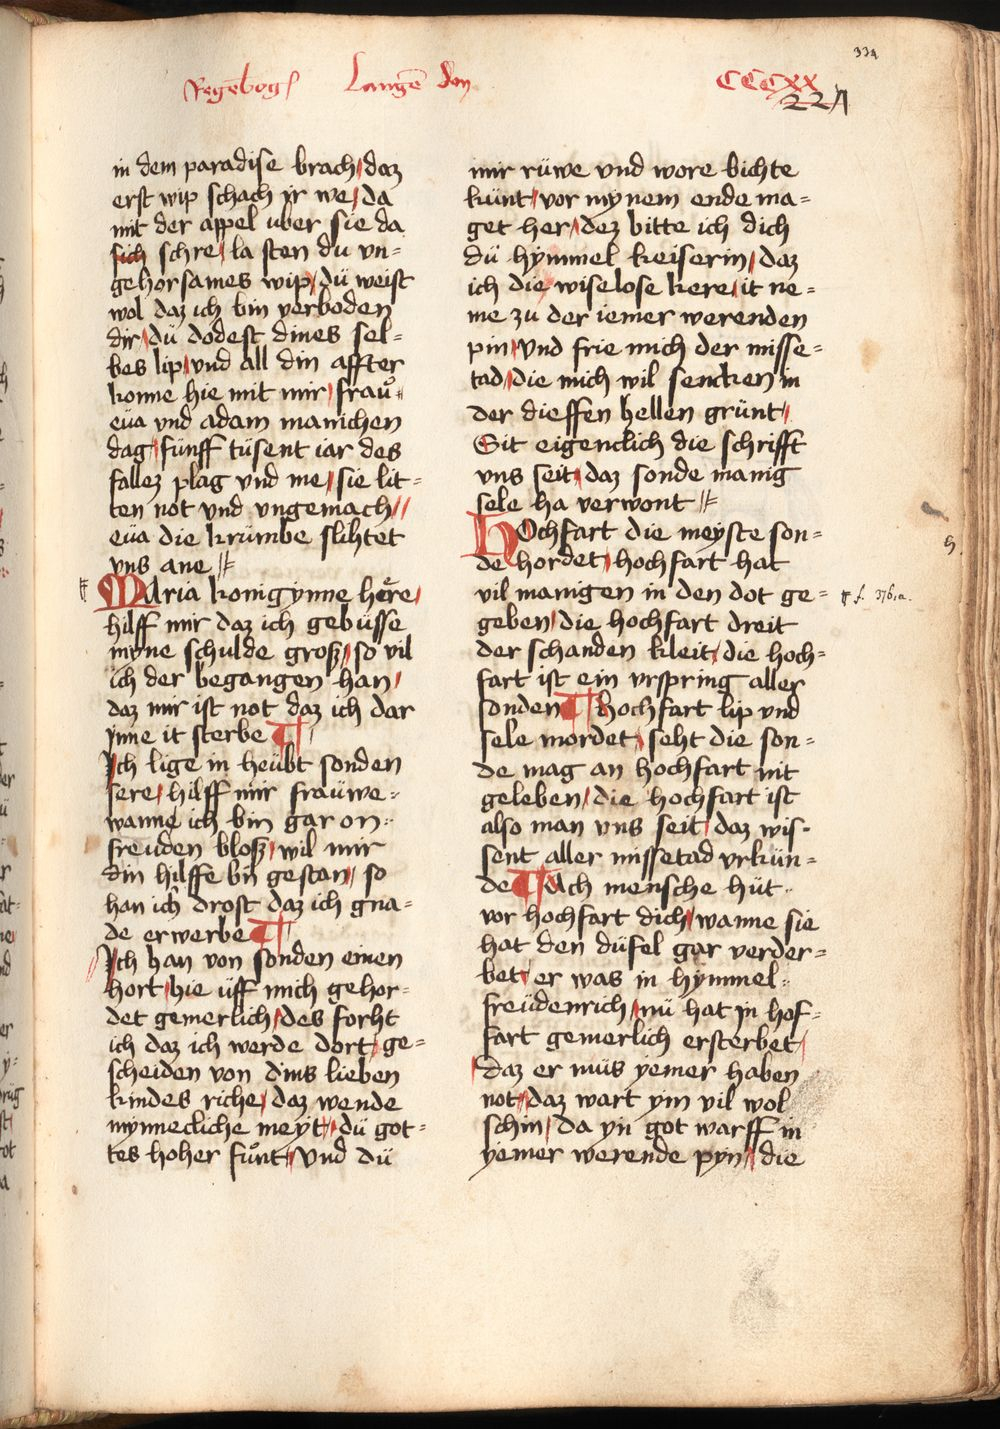 334
Regēbogs Langē don CCCXX
221
in dem paradise brach / daz
erst wip schach ir we / da
mit der appel uber sie da
sich schre / la sten du vn=
gehorsames wip / dü weist
wol daz ich bin verboden
dir / dü dodest dines sel=
bes lip / vnd all din affter
konne hie mit mir / fraů=
eüa vnd adam manichen
dag / fünff tüsent iar des
fallez plag vnd me / sie lit=
ten not vnd vngemach //
eüa die krümbe slihtet
vns ane //
MAria konigynne here /
hilff mir daz ich gebüsse
myne schulde groß / so vil
ich der begangen han /
daz mir ist not daz ich dar
ynne it sterbe ¶
Ich lige in heübt sonden
sere / hilff mir fraüwe=
wanne ich bin gar on=
freuden bloß / wil mir
din hilffe bÿ gestan / so
han ich drost daz ich gna=
de erwerbe ¶
Ich han von sonden einen
hort / hie üff mich gehor=
det gemerlich / des forht
ich daz ich werde dort ge=
scheiden von dins lieben
kindes riche / daz wende
mynnecliche meyt / dü got=
tes hoher fůnt / vnd dü
mir rüwe vnd wore bichte
künt / vor mynem ende ma=
get her / dez bitte ich dich
dü hymmel keiserin / daz
ich die wiselose kere / it ne=
me zu der iemer werenden
pin / vnd frie mich der misse=
tad / die mich wil sencken in
der dieffen hellen grünt /
Sit eigenclich die schrifft
vns seit / daz sonde manig
sele ha verwont //
HOchfart die meyste son=
de hordet / hochfart hat
vil manigen in den dot ge=
geben / die hochfart dreit
der schanden kleit / die hoch=
fart ist ein vrspring aller
sonden ¶ hochfart lip vnd
sele mordet / seht die son=
de mag an hochfart nit
geleben / die hochfart ist
also man vns seit / daz wis=
sent aller missetad vrkün=
de ¶ Ach mensche hüt
vor hochfart dich / wanne sie
hat den düfel gar verder=
bet / er was in hymmel=
freüdenrich / nü hat in hof=
fart gemerlich ersterbet /
daz er müs yemer haben
not / daz wart ym vil wol
schin / da yn got warff in
yemer werende pyn / die
5.
f. 376.a.